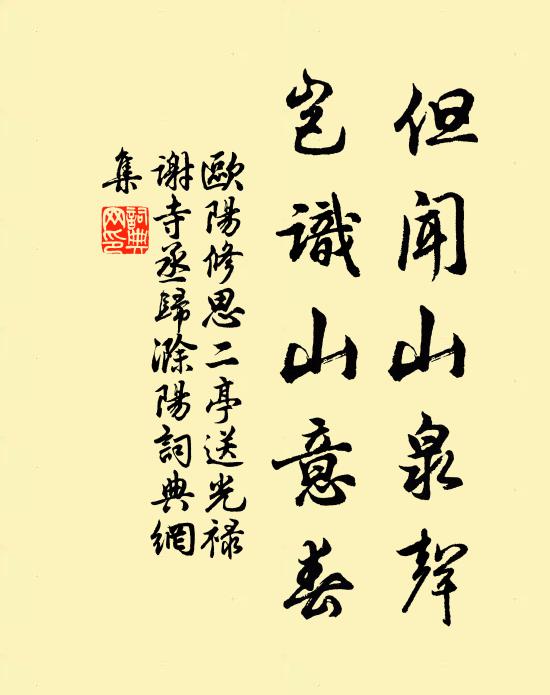 但聞山泉聲
豈識山意春
歐陽修思二亭送光禄
謝寺丞歸滁陽詞典網
集
詞典
网印